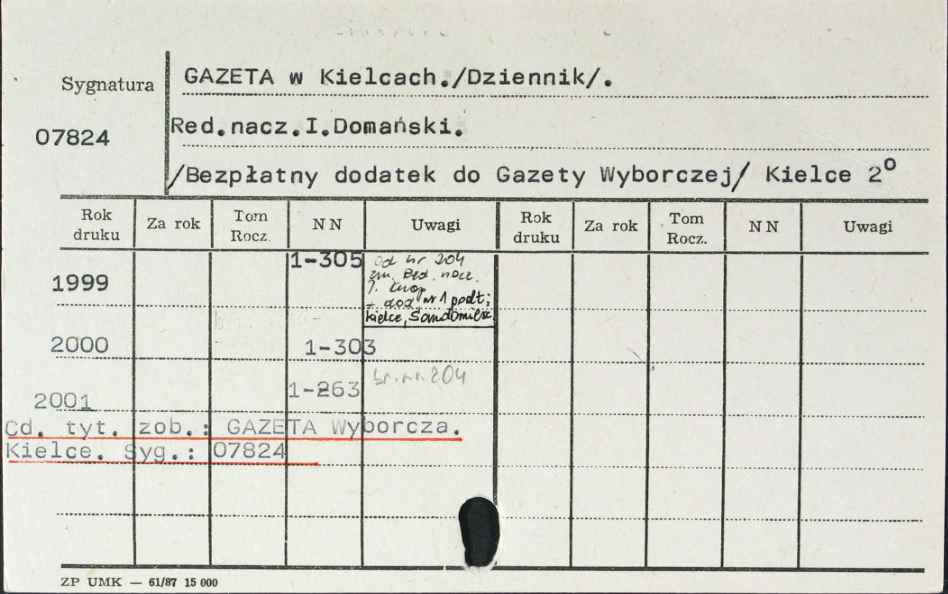 GAZETA w Kielcach./Dziennik/.
Sygnatura
07824
Red.nacz.I.Domański.
/Bezpłatny dodatek do Gazety Wyborczej/ Kielce 2°
Rok druku Za rok Tom Rocz. NN Uwagi Rok druku Za rok Tom Rocz. NN Uwagi
1999 1-305 od nr 204
zm. Red. nacz.
J. Knap
+ dod. nr 1 podt:
Kielce, Sandomierz.
2000 1-303
2001 1-263 br. nr. 204
Cd. tyt. zob.: GAZETA Wyborcza.
Kielce. Syg.: 07824
ZP UMK — 61/87 15 000